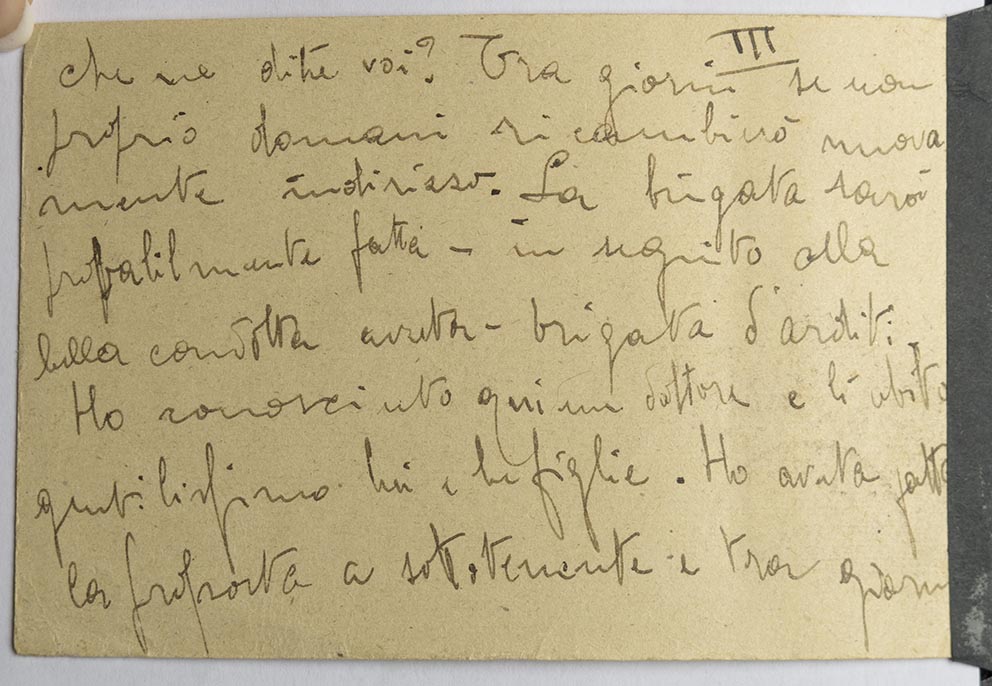 III
che ne dite voi? Tra giorni se non
proprio domani ricambierò nuova
mente indirizzo. La brigata sarà
probabilmente fatta – in seguito alla
bella condotta avuta – brigata d'arditi.
Ho conosciuto qui un dottore e lì abito
gentilissimo lui e le figlie. Ho avuta fatta
la proposta a sottotenente e tra giorni